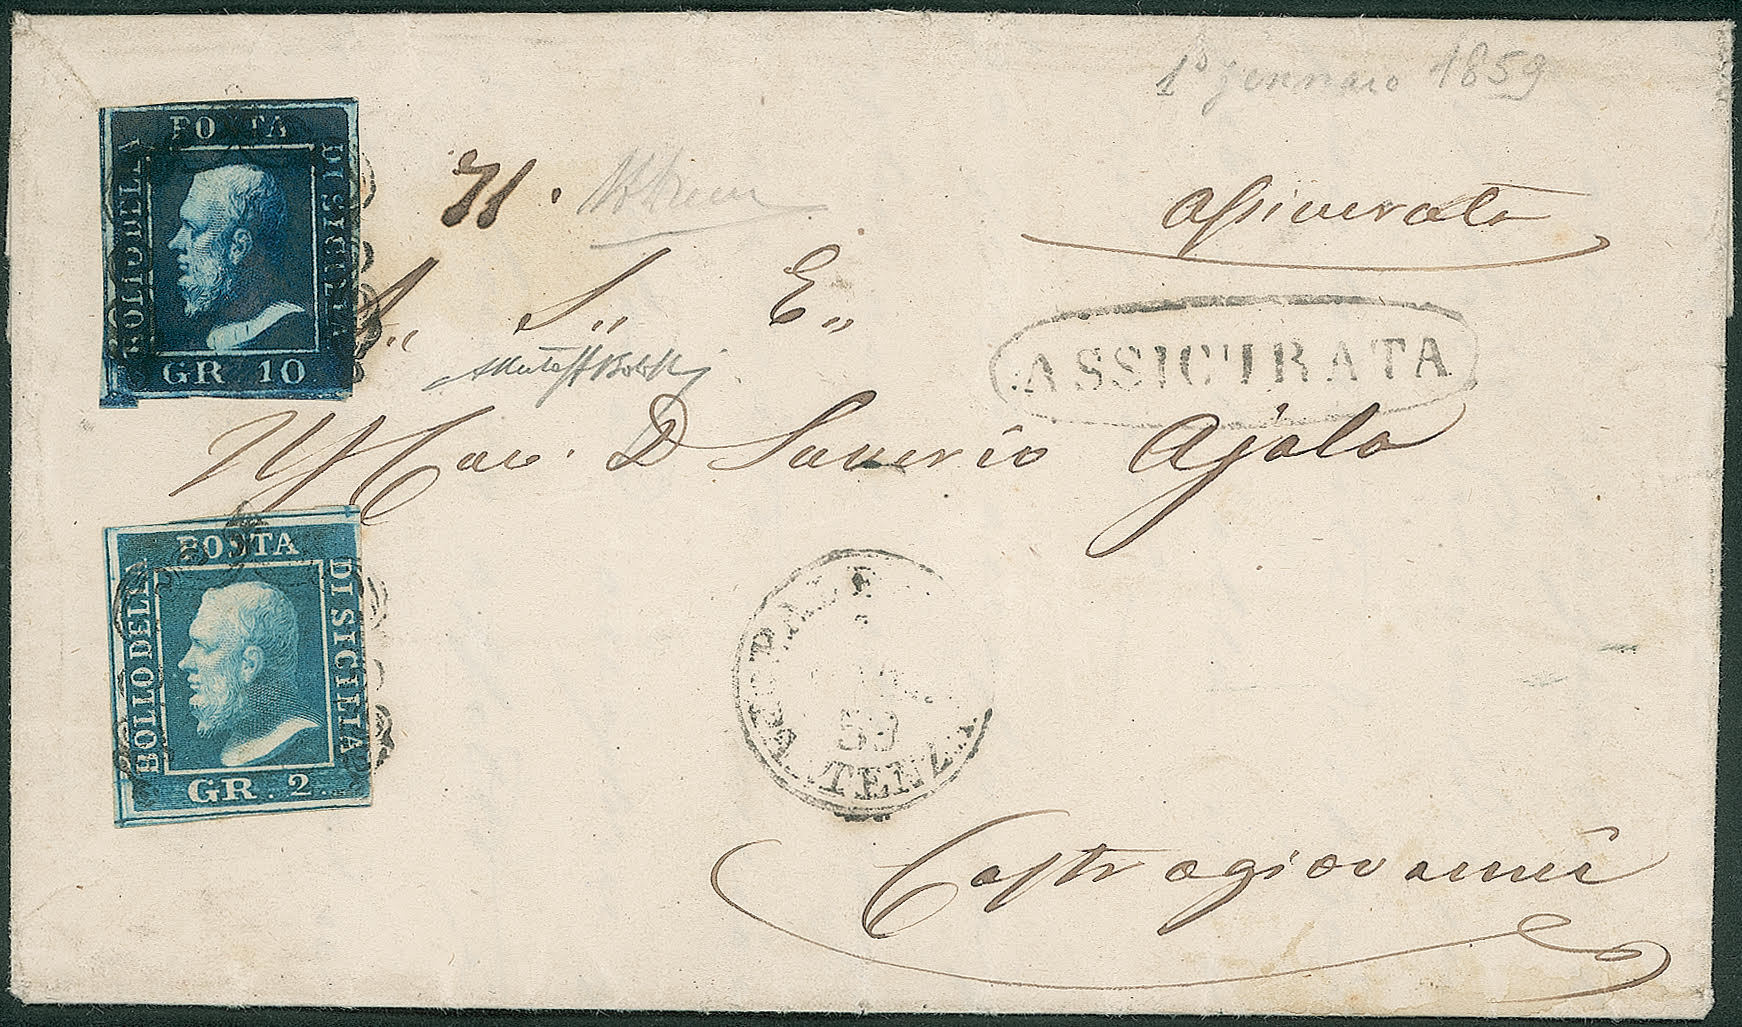 1° gennaio 1859
POSTA
BOLLO DELLA
DI SICILIA
GR 10
71.
Assicurata
A.. S.. E..
ASSICURATA
Mar. D Saverio Ajala
POSTA
BOLLO DELLA
DI SICILIA
GR. 2.
GENN.
59
PARTENZA
Castrogiovanni